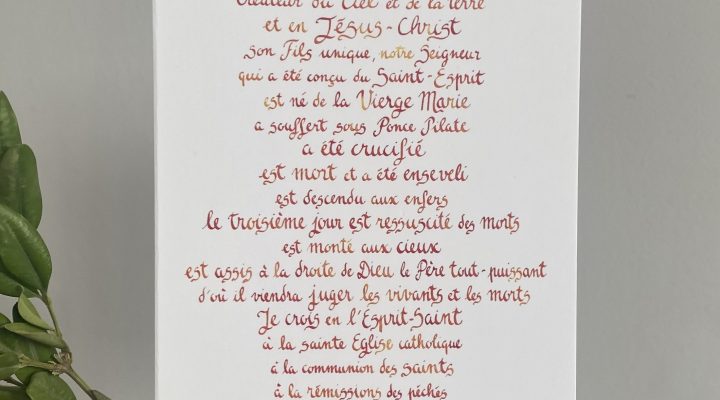 Créateur du Ciel et de la terre
et en Jésus-Christ
son Fils unique, notre Seigneur
qui a été conçu du Saint-Esprit
est né de la Vierge Marie
a souffert sous Ponce Pilate
a été crucifié
est mort et a été enseveli
est descendu aux enfers
le troisième jour est ressuscité des morts
est monté aux cieux
est assis à la droite de Dieu le Père tout-puissant
d'où il viendra juger les vivants et les morts
Je crois en l'Esprit-Saint
à la sainte Eglise catholique
à la communion des saints
à la rémissions des péchés